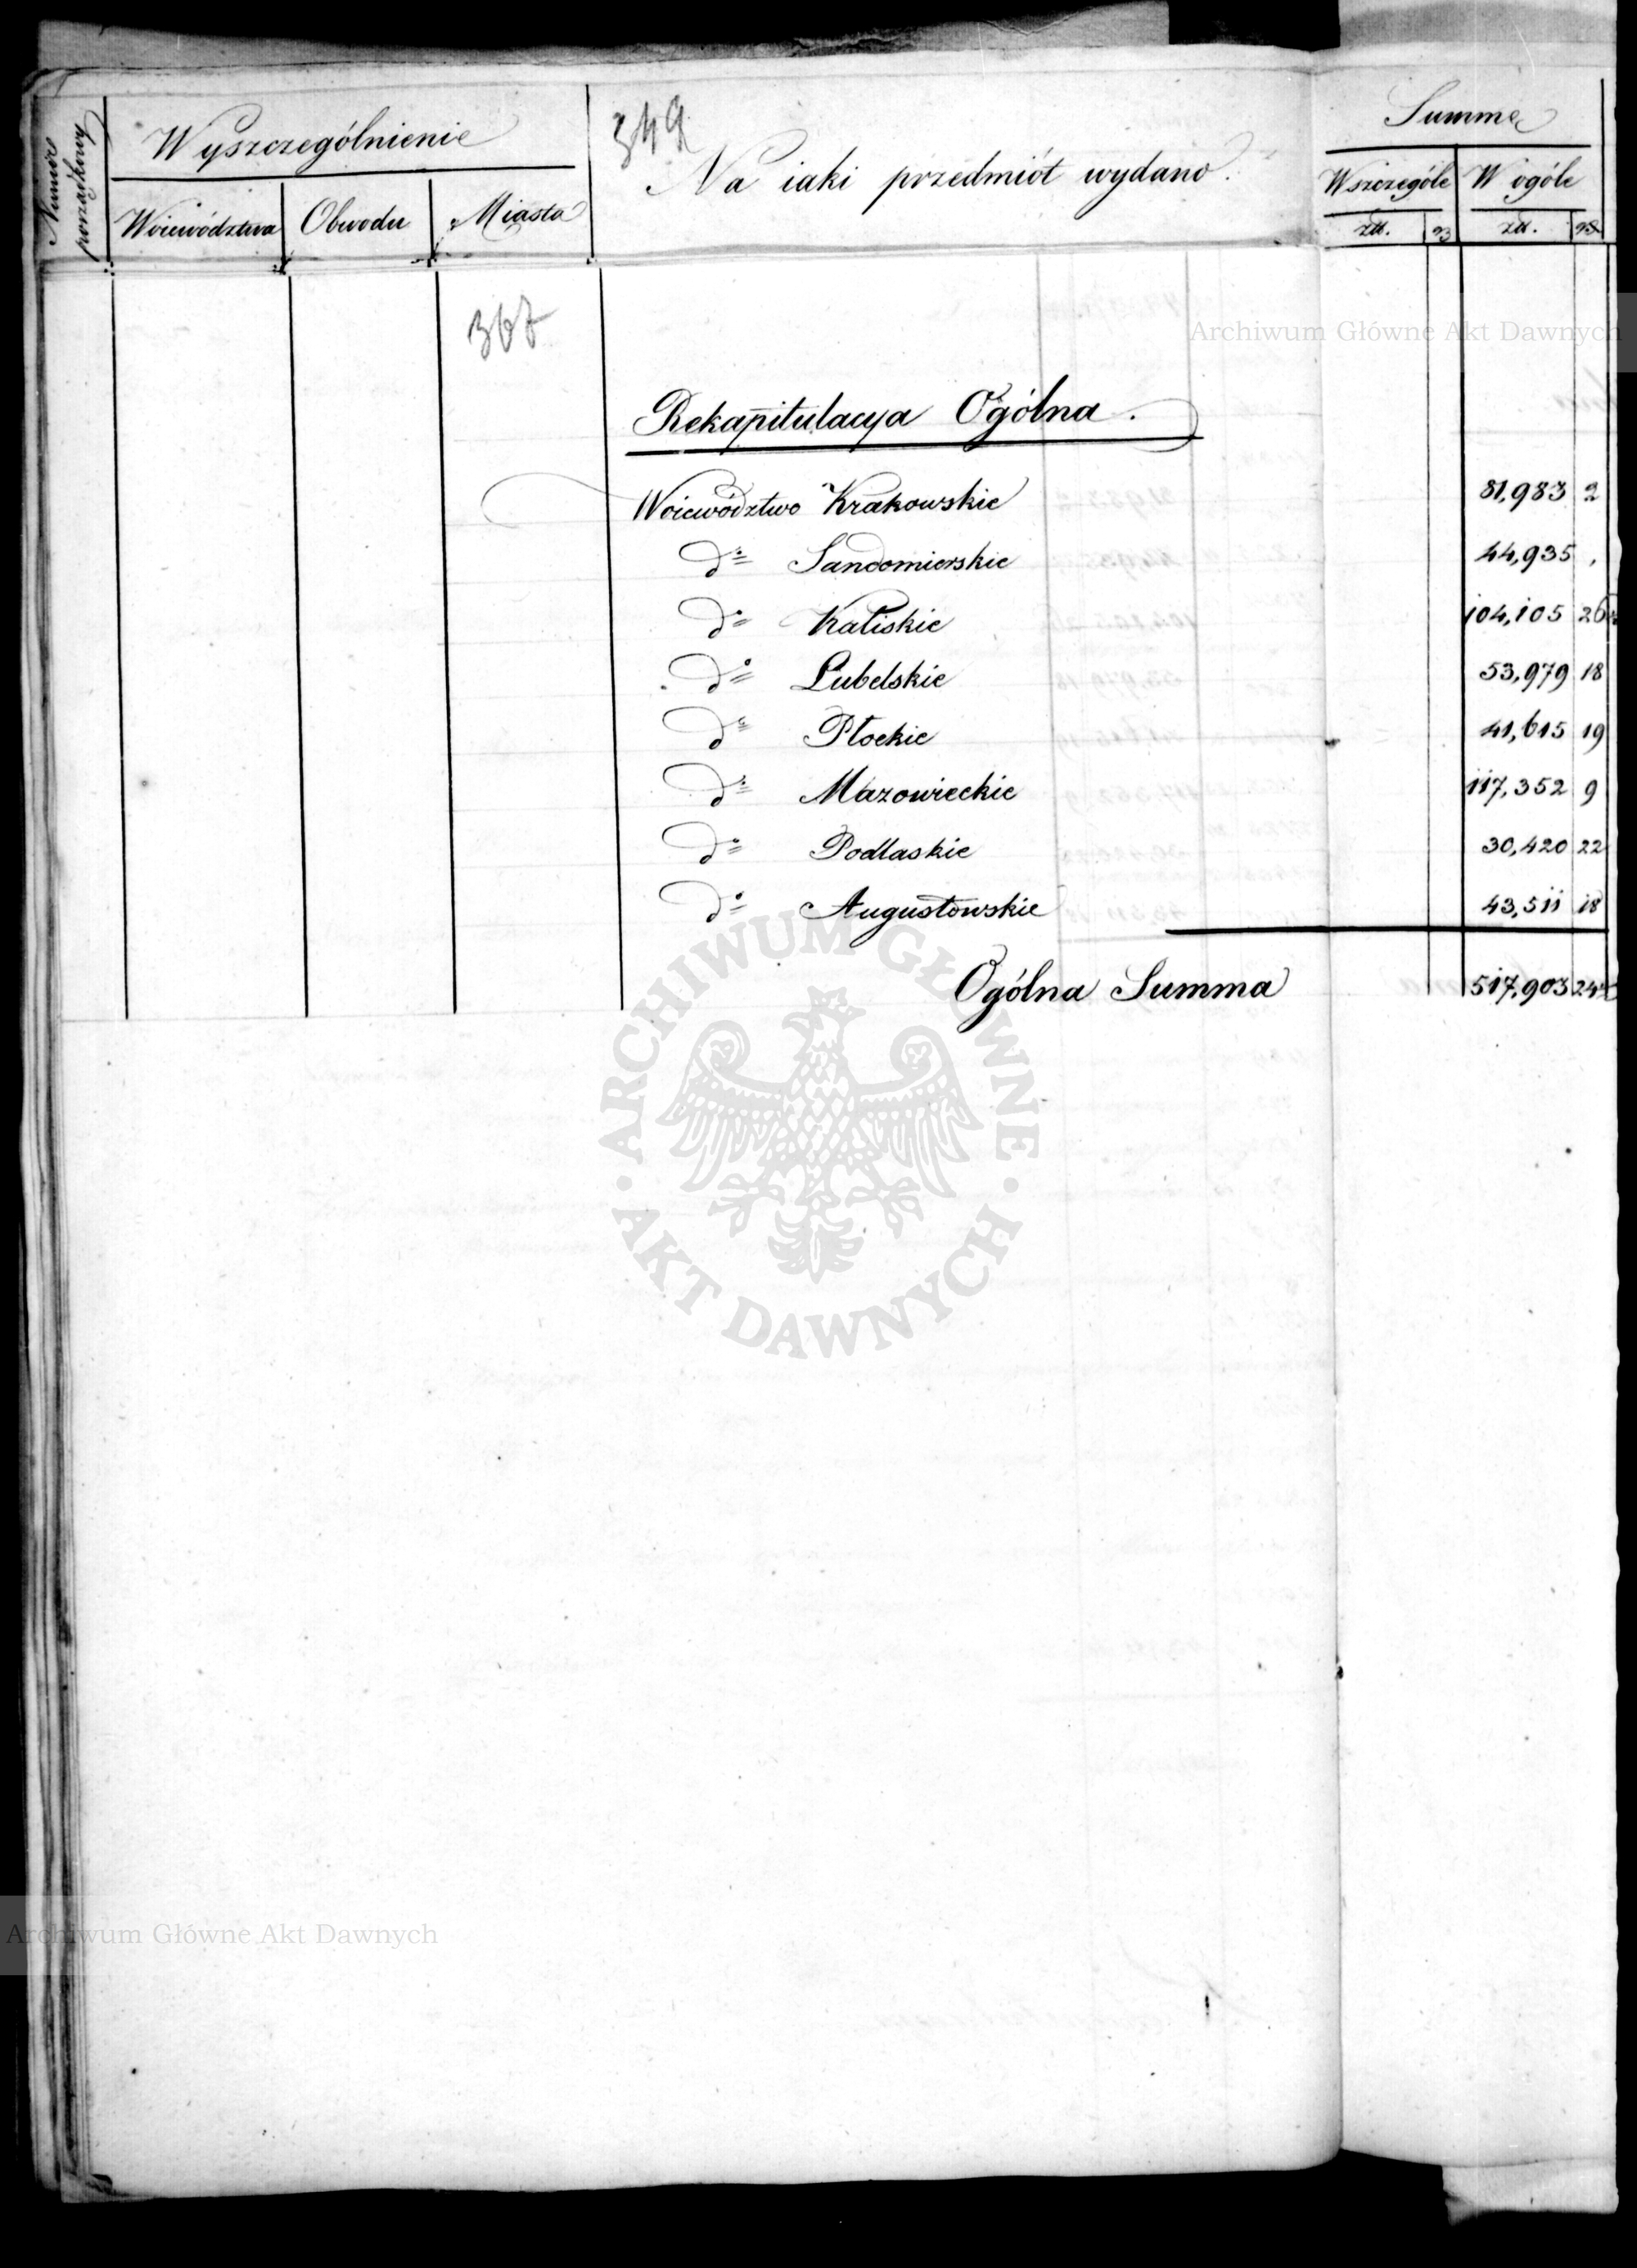 Numer porządkowy
Wyszczególnienie
Woiewództwa
Obwodu
Miasta
349
Na iaki przedmiót wydano.
Summa
Wszczególe
W ogóle
zł. gr
zł. gr
367
Archiwum Główne Akt Dawnych
Rekapitulacya Ogólna.
Woiewództwo Krakowskie 81,983 2
do Sandomierskie 44,935 .
do Kaliskie 104,105 26
do Lubelskie 53,979 18
do Płockie 41,615 19
do Mazowieckie 117,352 9
do Podlaskie 30,420 22
do Augustowskie 43,511 18
Ogólna Summa 517,903 24
ARCHIWUM GŁÓWNE AKT DAWNYCH
Archiwum Główne Akt Dawnych